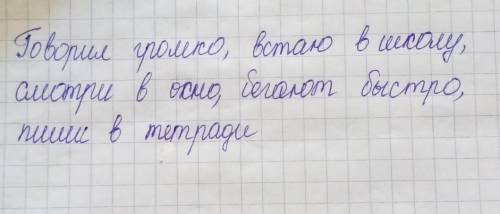 Говорил громко, встаю в школу,
смотри в окно, бегают быстро,
пиши в тетради